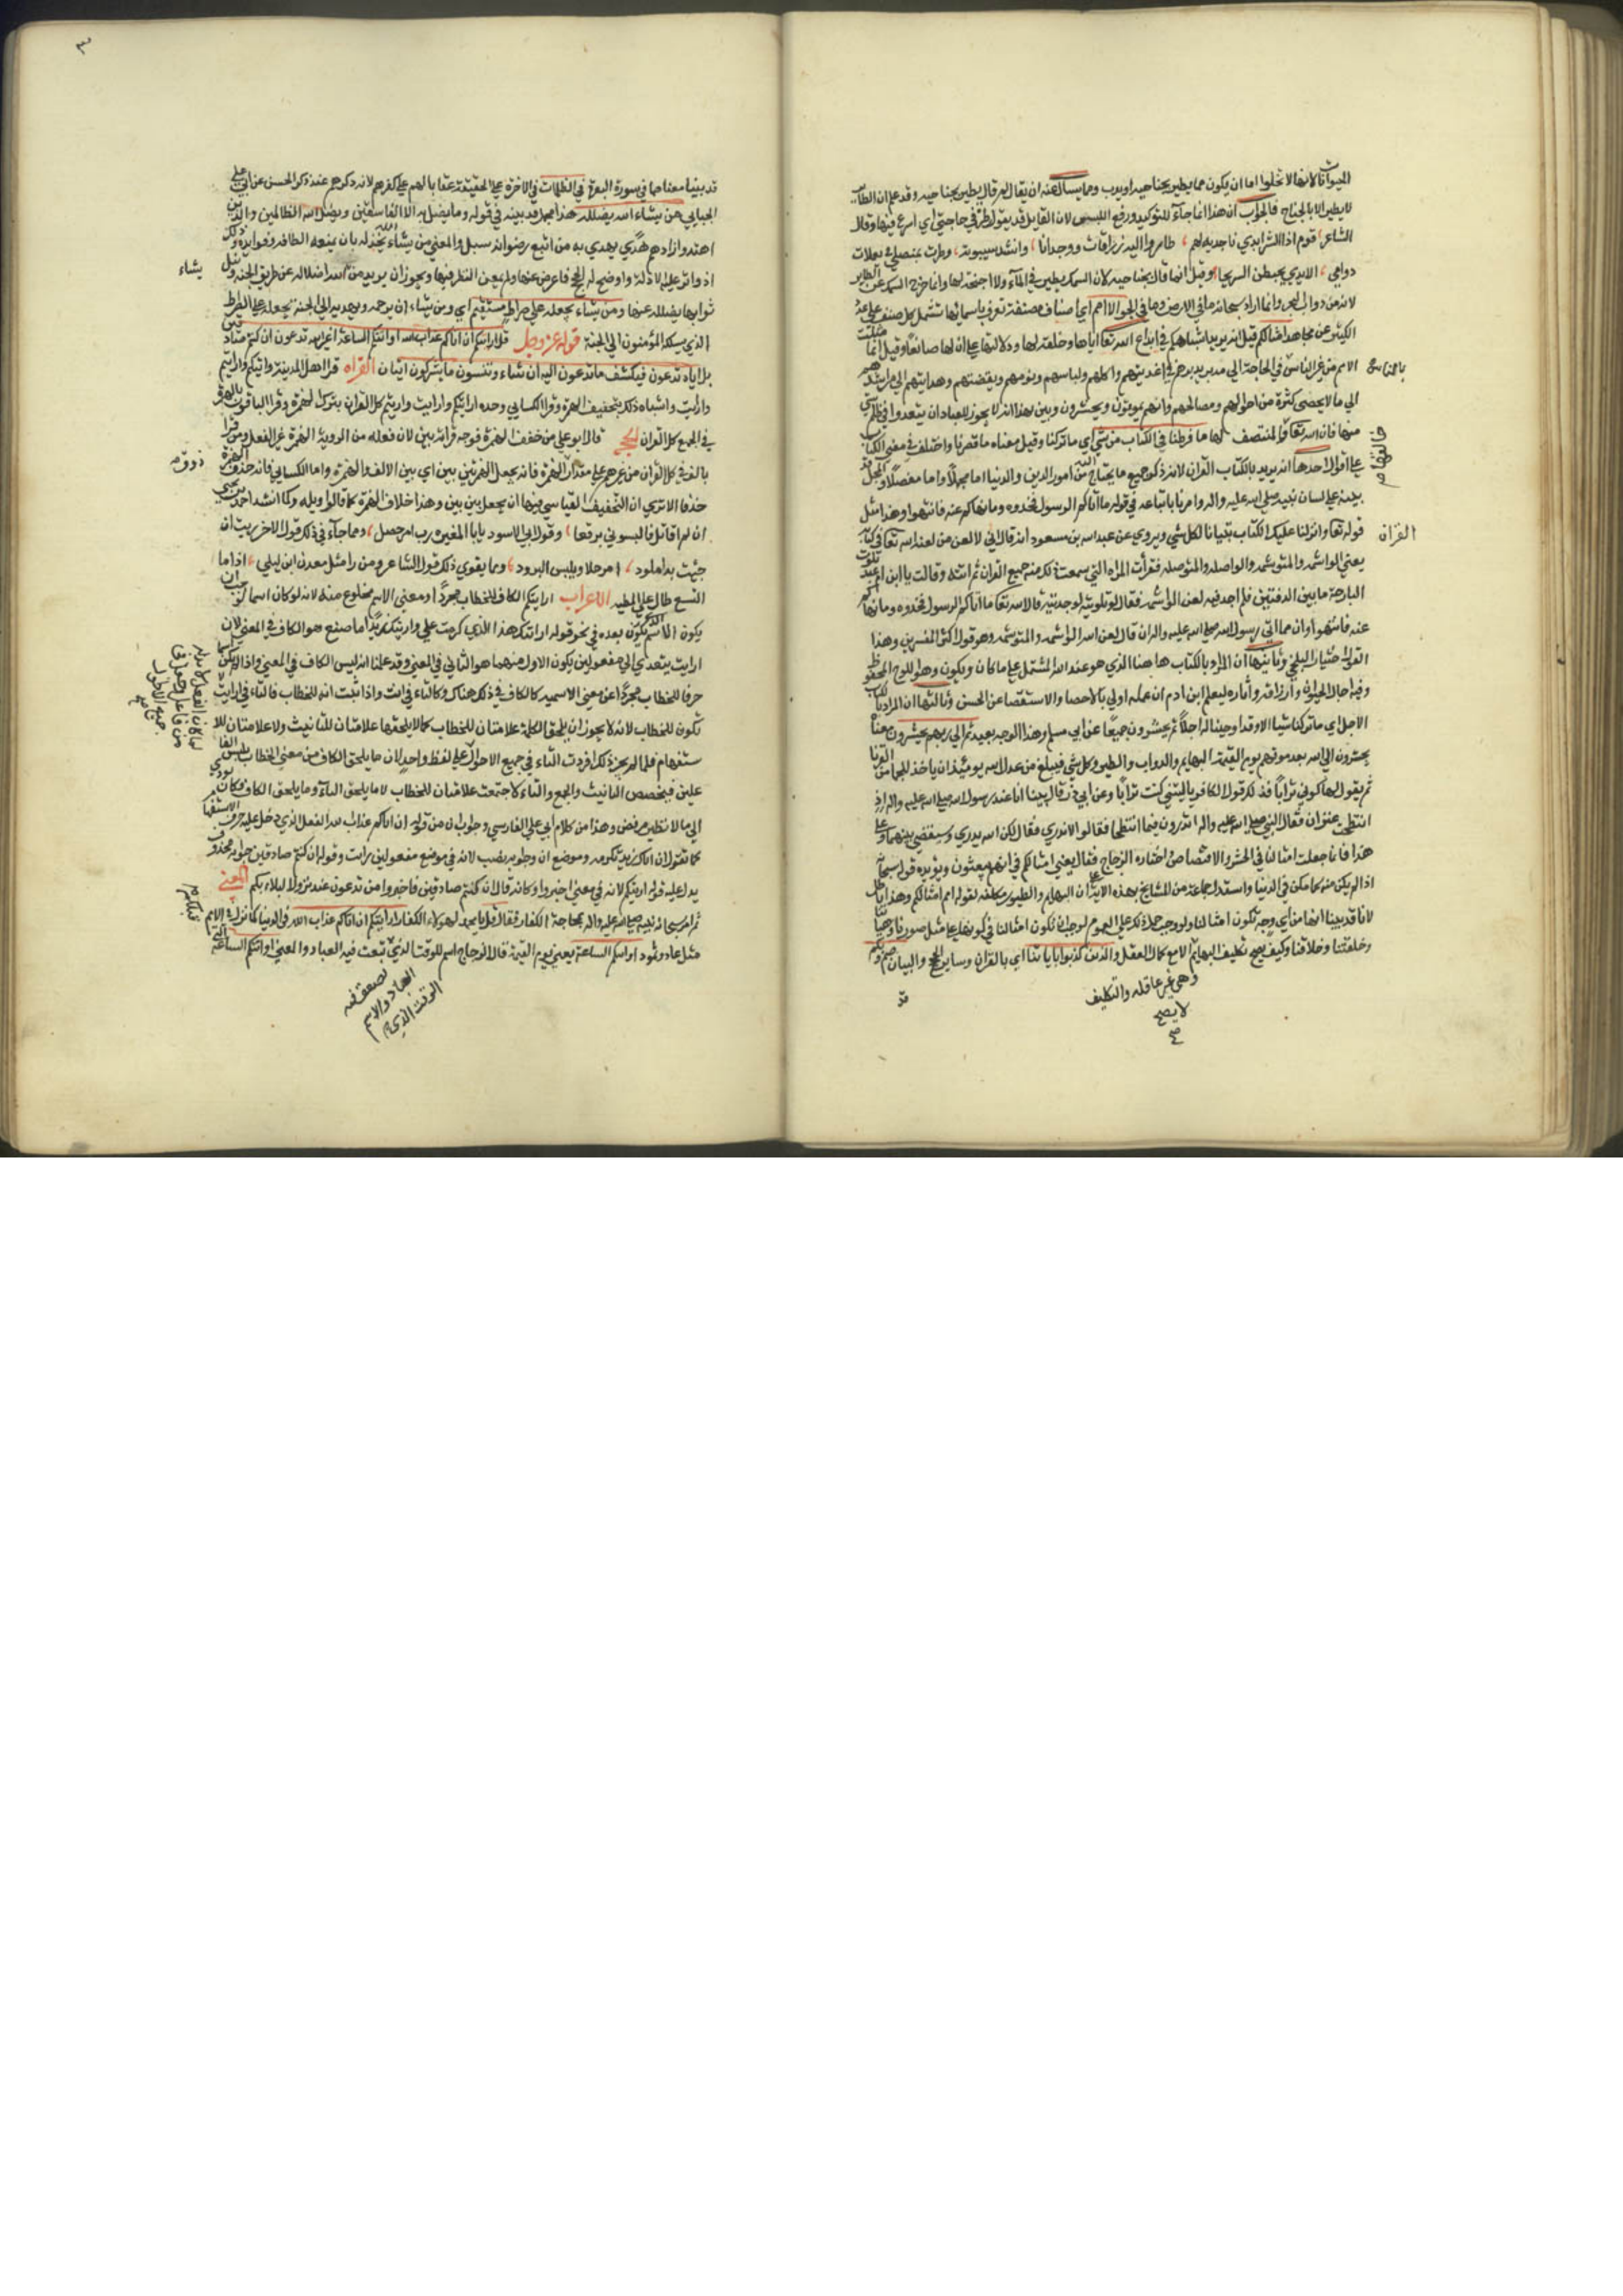 الحيوانات لانها لا تخلوا اما ان يكون مما يطير بجناحيه او يدب ومما يسأل عنه ان يقال لم قال يطير بجناحيه وقد علم ان الطاير
لا يطير الا بالجناح فالجواب ان هذا انما جاء للتوكيد ورفع اللبس لان القايل قد يقول طر في حاجتي اي اسرع فيها وقال
الشاعر قوم اذا الشر ابدي ناجذيه لهم طاروا اليه زرافات ووحدانا وانشد سيبويه وطرت بمنصلي في يعملات
دوامي الايدي يخبطن السريحا وقيل انما قال بجناحيه لان السمك يطير في الماء ولا اجنحة لها وانما خرج السمك عن الطاير
لانه من دواب البحر وانما اراد سبحانه ما في الارض وما في الجو الا امم اي اصناف مصنفة تعرف باسمائها تشتمل كل صنف علي العدد
الكثير عن مجاهد امثالكم قيل انه يريد اشباهكم في ابداع الله تعا اياها وخلقه لها ودلالتها علي ان لها صانعا وقيل انما مثلت
الامم من غير الناس في الحاجة الي مدبر يدبرهم في اغذيتهم واكلهم ولباسهم ونومهم ويقضتهم وهدايتهم الي مراشدهم
الي ما لا يحصي كثرة من احوالهم ومصالحهم وانهم يموتون ويحشرون وبين بهذا انه لا يجوز للعباد ان يتعدوا في ظلم شي
منها فان الله تعا خالقها والمنتصف لها ما فرطنا في الكتاب من شي اي ما تركنا وقيل معناه ما قصرنا واختلف في معني الكتاب
علي اقوال احدها انه يريد بالكتاب القران لانه ذكر جميع ما يحتاج اليه من امور الدين والدنيا اما مجملا واما مفصلا والمجمل قد
بينه علي لسان نبيه صلي الله عليه واله وامرنا باتباعه في قوله ما اتاكم الرسول فخذوه وما نهاكم عنه فانتهوا وهذا مثل
قوله تعا وانزلنا عليك الكتاب تبيانا لكل شي ويروي عن عبدالله بن مسعود انه قال الي لا العن من لعنه الله تعا في كتابه
يعني الواشمه والمتوشمه والواصله والمتوصله فقرأت المراه التي سمعت ذلك منه جميع القران ثم اتته وقالت يا ابن ام عبد تلوت
البارحة ما بين الدفتين فلم اجد فيه لعن الواشمه فقال لو تلوتيه لوجدتيه قال الله تعا ما اتاكم الرسول فخذوه وما نهاكم
عنه فانتهوا وان مما اتي رسول الله صلي الله عليه واله ان قال لعن الله الواشمه والمتوشمه وهو قول اكثر المفسرين وهذا
القول اختيار البلخي وثانيها ان المراد بالكتاب ها هنا الذي هو عند الله المشتمل علي ما كان ويكون وهو اللوح المحفوظ
وفيه اجال الحيوان وارزاقه واثاره ليعلم ابن ادم ان عمله اولي بالاحصا والاستقصا عن الحسن وثالثها ان المراد بالكتاب
الاجل اي ما تركنا شيا الا وقد اوجبنا له اجلا ثم يحشرون جميعا عن ابي مسلم وهذا الوجه بعيد ثم الي ربهم يحشرون معناه
يحشرون الي الله بعد موتهم يوم القيمة البهايم والدواب والطير وكل شي فيبلغ من عدل الله يومئذ ان ياخذ للجما من القرنا
ثم يقول لها كوني ترابا فذلك قول الكافر يا ليتني كنت ترابا وعن ابي ذر قال بينا انا عند رسول الله صلي الله عليه واله اذ
انتطحت عنزان فقال النبي صلي الله عليه واله اتدرون فيما انتطحا فقالوا لا ندري فقال لكن الله يدري وسيقضي بينهما وعلي
هذا فانما جعلت امثالنا في الحشر والاقتصاص اختاره الزجاج فقال يعني امثالكم في انهم يبعثون ويؤيده قوله سبحانه
لانا قد بينا انها من اي وجه تكون امثالنا ولو وجب حمل ذلك علي العموم لوجب ان تكون امثالنا في كونها علي مثل صورنا وهيأتنا
وخلقتنا وخلاقنا وكيف يصح تكليف البهايم الا مع كمال العقل والذين كذبوا باياتنا اي بالقران وساير الحجج والبيان صم وبكم
القران
وهي غير عاقله والتكليف
لا يصح
صح
قد
٣
قد بينا معناهما في سورة البقرة في الظلمات في الاخرة علي الحقيقة عقابا لهم علي كفرهم لانه ذكرهم عند ذكر الحسن عن ابي علي
الجبايي من يشاء الله يضلله هذا مجمل قد بينه في قوله وما يضل به الا الفاسقين ويضل الله الظالمين والذين
اهتدوا زادهم هدي يهدي به من اتبع رضوانه سبل والمعني من يشاء الله يخذله بان يمنعه الطافه وفوايده وذلك
اذ واتر عليه الادلة واوضح له الحجج فاعرض عنها ولم يمعن النظر فيها ويجوز ان يريد من يشاء الله اضلاله عن طريق الجنة ونيل
ثوابها يضلله عنها ومن يشاء يجعله علي صراط مستقيم اي ومن يشاء ان يرحمه ويهديه الي الجنة يجعله علي الصراط
الذي يسلكه المؤمنون الي الجنة قوله عز وجل قل ارايتكم ان اتاكم عذاب الله او اتتكم الساعة اغير الله تدعون ان كنتم صادقين
بل اياه تدعون فيكشف ما تدعون اليه ان شاء وتنسون ما تشركون ايتان القراه قرا اهل المدينة ارايتكم وارايتم
وارايت واشباه ذلك بتخفيف الهمزة وقرا الكسايي وحده اريتكم واريت واريتم كل القران بترك الهمزة وقرا الباقون بالهمز
في الجميع كل القران الحجج قال ابو علي من حقق الهمزة فوجه قرائته بين لان فعله من الروية الهمزة عين الفعل ومن قرا
حذفا الا تري ان التخفيف القياسي فيها ان يجعل بين بين وهذا خلاف الهمزة كما قالوا ويلمه وكما انشد احمد بن يحيي
ان لم اقاتل فالبسوني برقعا وقول ابي الاسود يابا المغيره رب امر معضل ومما جاء في ذلك قول الاخر اريت ان
جئت به املود مرجلا ويلبس البرود ومما يقوي ذلك قول الشاعر ومن را مثل معدن ابن ليلي اذا ما
النسع طال علي المطيه الاعراب ارايتكم الكاف للخطاب مجردا ومعني الاسم مخلوع منه لانه لو كان اسما لوجب ان
يكون الاسم الذي يكون بعده في نحو قوله ارايتك هذا الذي كرمت علي وارايتك زيدا ما صنع هو الكاف في المعني لان
ارايت يتعدي الي مفعولين يكون الاول منهما هو الثاني في المعني وقد علمنا انه ليس الكاف في المعني واذا لم يكن اسما
حرفا للخطاب مجردا عن معني الاسميه كالكاف في ذلك هناك وكالتاء في انت واذا ثبت انه للخطاب فالتاء في ارايت لا
تكون للخطاب لانه لا يجوز ان يلحق الكلمة علامتان للخطاب كما لا يلحقها علامتان للتانيث ولا علامتان للا
ستفهام فلما لم يجز ذلك افردت التاء في جميع الاحوال علي لفظ واحد لان ما يلحق الكاف من معني الخطاب يبين الفا
علين فيخصص التانيث والجمع والتاء كا جتمعت علامتان للخطاب لا ما يلحق التاء وما يلحق الكاف وكان يودي
الي ما لا نظير له رفض وهذا من كلام ابي علي الفارسي وجواب ان من قوله ان اتاكم عذاب الله الفعل الذي دخل عليه حرف الاستفهام
كما تقول ان اتاك زيد تكرمه وموضع ان وجوابه نصب لانه في موضع مفعولين رايت وقوله ان كنتم صادقين جوابه محذوف
يدل عليه قوله ارايتكم لانه في معني اخبروا وكانه قال ان كنتم صادقين فاخبروا من تدعون عند نزول البلاء بكم المعني
ثم امر سبحانه نبيه صلي الله عليه واله بمحاجة الكفار فقال قل يا محمد لهؤلاء الكفار ارايتكم ان اتاكم عذاب الله في الدنيا كما نزل بالامم
مثل عاد وثمود او اتتكم الساعة يعني يوم القيمة قال الزجاج اسم للوقت الذي تبعث فيه العباد والمعني او اتتكم الساعة التي
يشاء
قبلكم
يصعق فيه
العباد والاسم
الوقت الذي